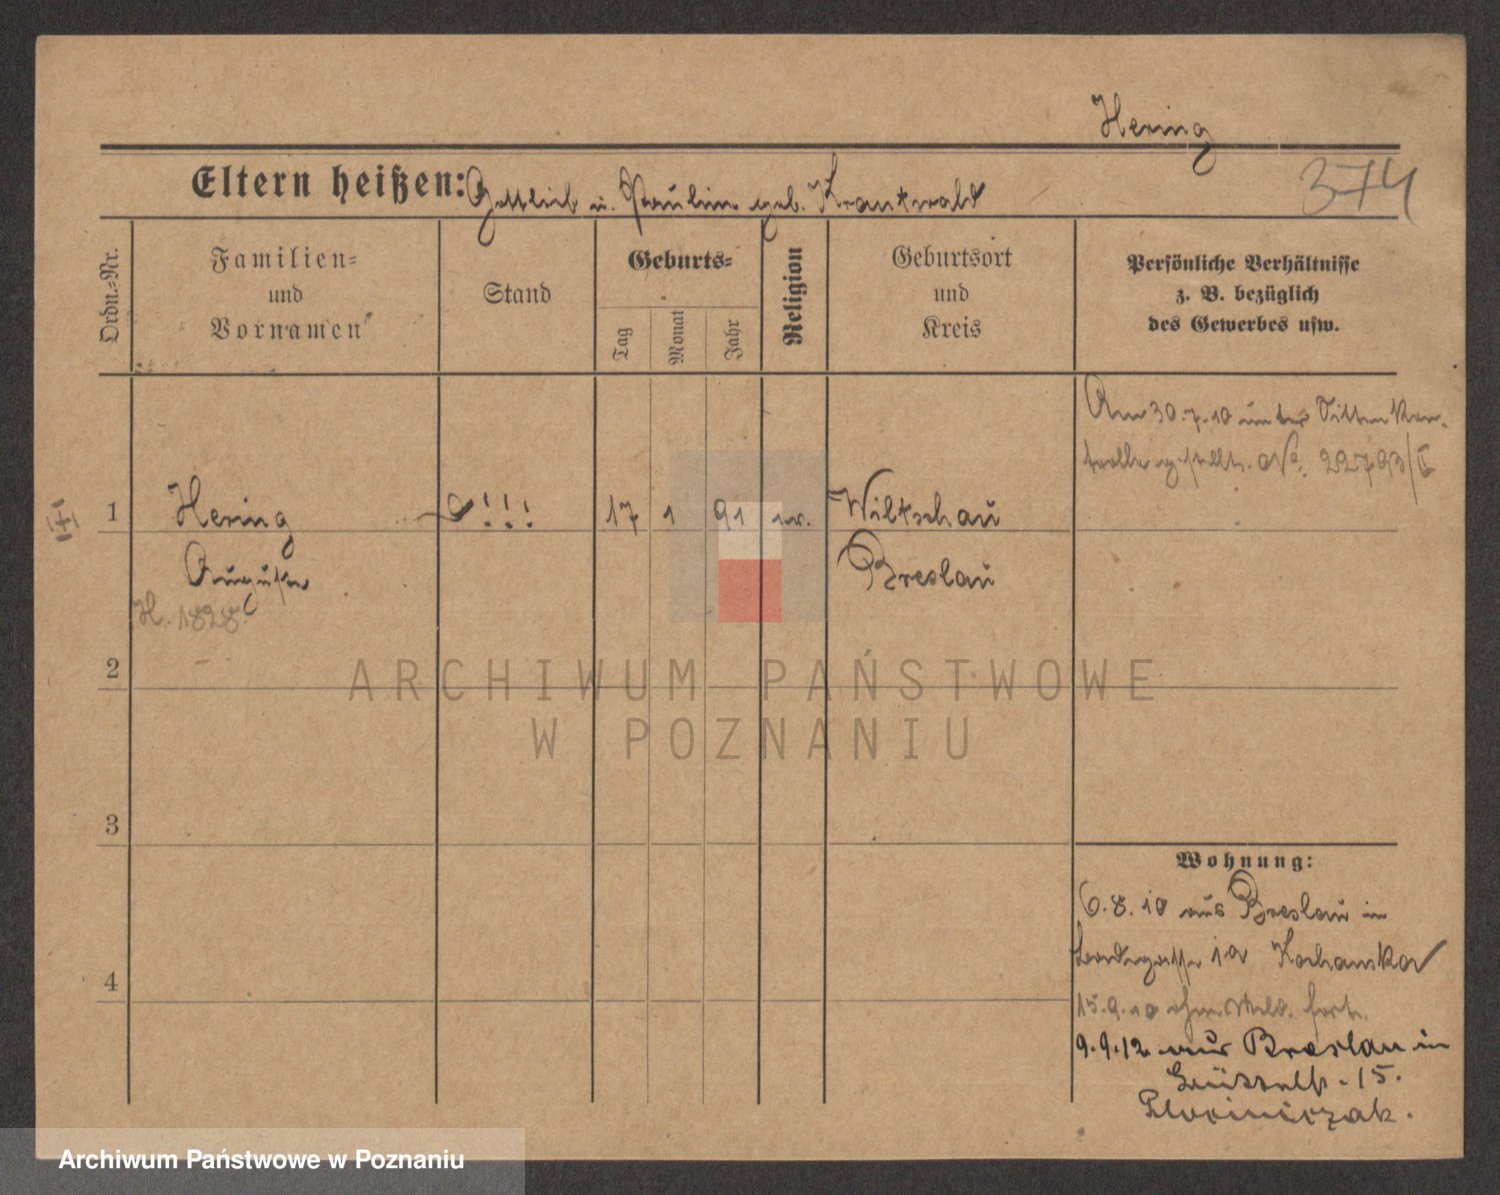 Hering
Eltern heißen: Gottlieb u. Pauline geb. Krautwald
374
Ordn.-Nr.
Familien-
und
Vornamen
Stand
Geburts-
Tag
Monat
Jahr
Religion
Geburtsort
und
Kreis
Persönliche Verhältnisse
z. B. bezüglich
des Gewerbes usw.
Am 30.7.10 unter Sitten Kon-
trolle gestellt. No. 22793/
1 Hering !!! 17 1 91 ev. Wiltschau
Auguste Breslau
H. 1828
2
3
4
Wohnung:
6.8.10 aus Breslau in
1a Kochanska
15.9.10 ohne Meld. fort.
9.9.12 aus Breslau in
15.
ARCHIWUM PAŃSTWOWE
W POZNANIU
Archiwum Państwowe w Poznaniu